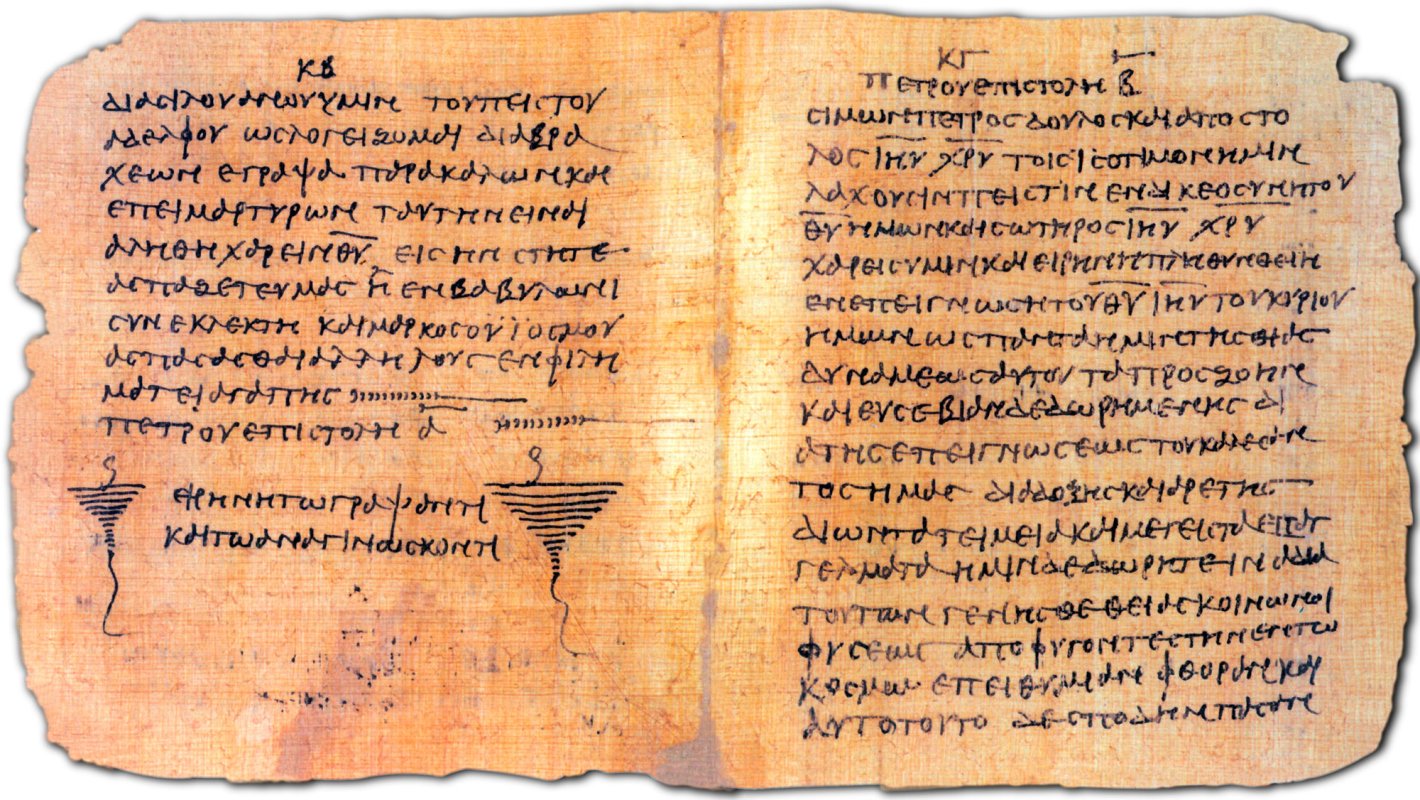 ΚΒ
διασιλουανουυμιν τουπειστου
αδελφου ωςλογειζομαι διαβρα
χεων εγραψα παρακαλωνκαι
επειμαρτυρων ταυτηνειναι
αληθηχαρεινθ̅υ̅ ειςην στητε
ασπαζετευμας η ενβαβυλωνι
συνεκλεκτη καιμαρκοςουϊοςμου
ασπασασθαιαλληλους ενφιλη
ματειαγαπης
πετρουεπιστολη α̅
ειρηνητωγραψαντι
καιτωαναγινωσκοντι
ΚΓ
πετρουεπιστολη Β̅
σιμωνπετροςδουλοςκαιαποστο
λοςι̅η̅υ̅ χ̅ρ̅υ̅ τοιςϊσοτιμονημιν
λαχουσινπειστινενδικεοσυνητου
θ̅υ̅ημωνκαισωτηροςι̅η̅υ̅ χ̅ρ̅υ̅
χαρειςυμινκαιειρηνηπληθυνθειη
ενεπειγνωσητουθ̅υ̅ι̅η̅υ̅τουκυριου
ημωνωςπανταημινετηςθιας
δυναμεωςαυτουταπροςζοην
καιευσεβιανδεδωρημενης δι
ατηςεπειγνωσεωςτουκαλεσαν
τοςημας διαδοξηςκαιαρετης
διωντατειμειακαιμεγισταεπαγ
γελματα ημινδεδωρητειναδια
τουτωνγενησθεθειαςκοινωνοι
φυσεως αποφυγοντεςτηνεντω
κοσμω επειθυμιαν φθορανκαι
αυτοτουτο δεσποδηνπασαν